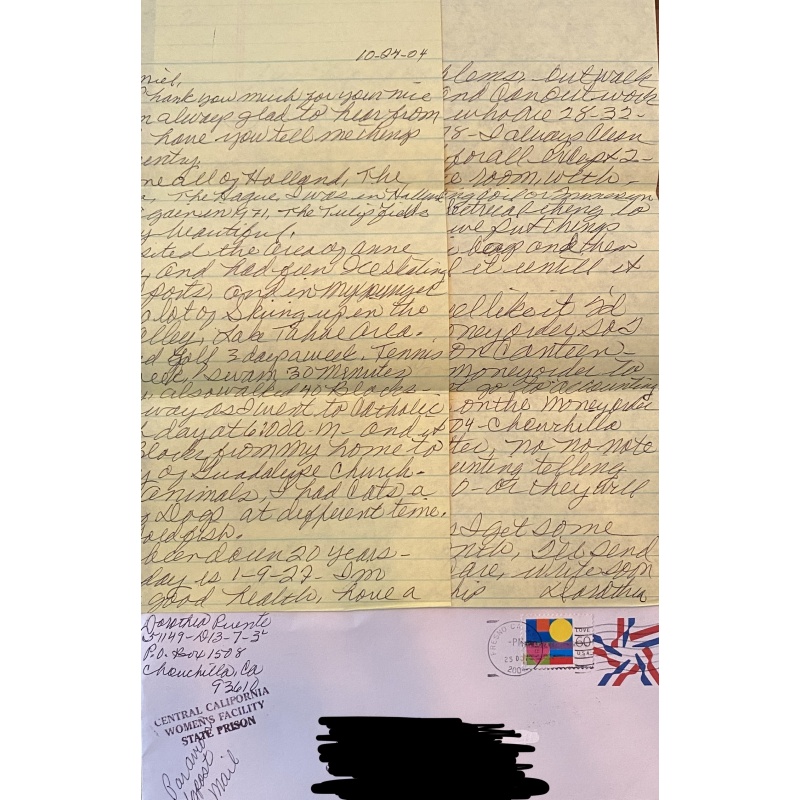 10-27-04
niel,
Thank you much for your nice
m always glad to hear from
have you tell me things
entry.
me all of Holland, The
The Hague, I was in Holland
gain in 1971, The Tulip fields
y beautiful.
sited the area of Anne
and had fun Ice skating
ports, and in My younger
a lot of Skiing up in the
alley, Lake Tahoe area.
ed Golf 3 days a week, Tennis
week, swam 30 Minutes
also walked 40 Blocks -
way as I went to Catholic
day at 6:00 A.M - and it
Blocks from My home to
y of Guadalupe Church.
animals, I had Cats, a
Dogs at different time.
oldfish.
been down 20 years -
day is 1-9-29 - I'm
good health, have a
blems, - Out walk
and Can out work
who are 28-32-
78 - I always clean
for all except 2 -
e room, with -
ing
to
ive put things
and then
l it untill it
ell like it I'd
oney order, so I
on Canteen -
Money order to
t go to accounting
on the Money order
04 - Chowchilla
ter, No No Note
unting telling
0 - or they will
s I get some
I'll send
are, write soon
hip Dorothea
Dorothea Puente
D13-7-3L
P.O. Box 1508
Chowchilla, Ca
93610
CENTRAL CALIFORNIA
WOMEN'S FACILITY
STATE PRISON
Par avion
post
Mail
FRESNO CA
-PM
25
2004
LOVE
60
USA